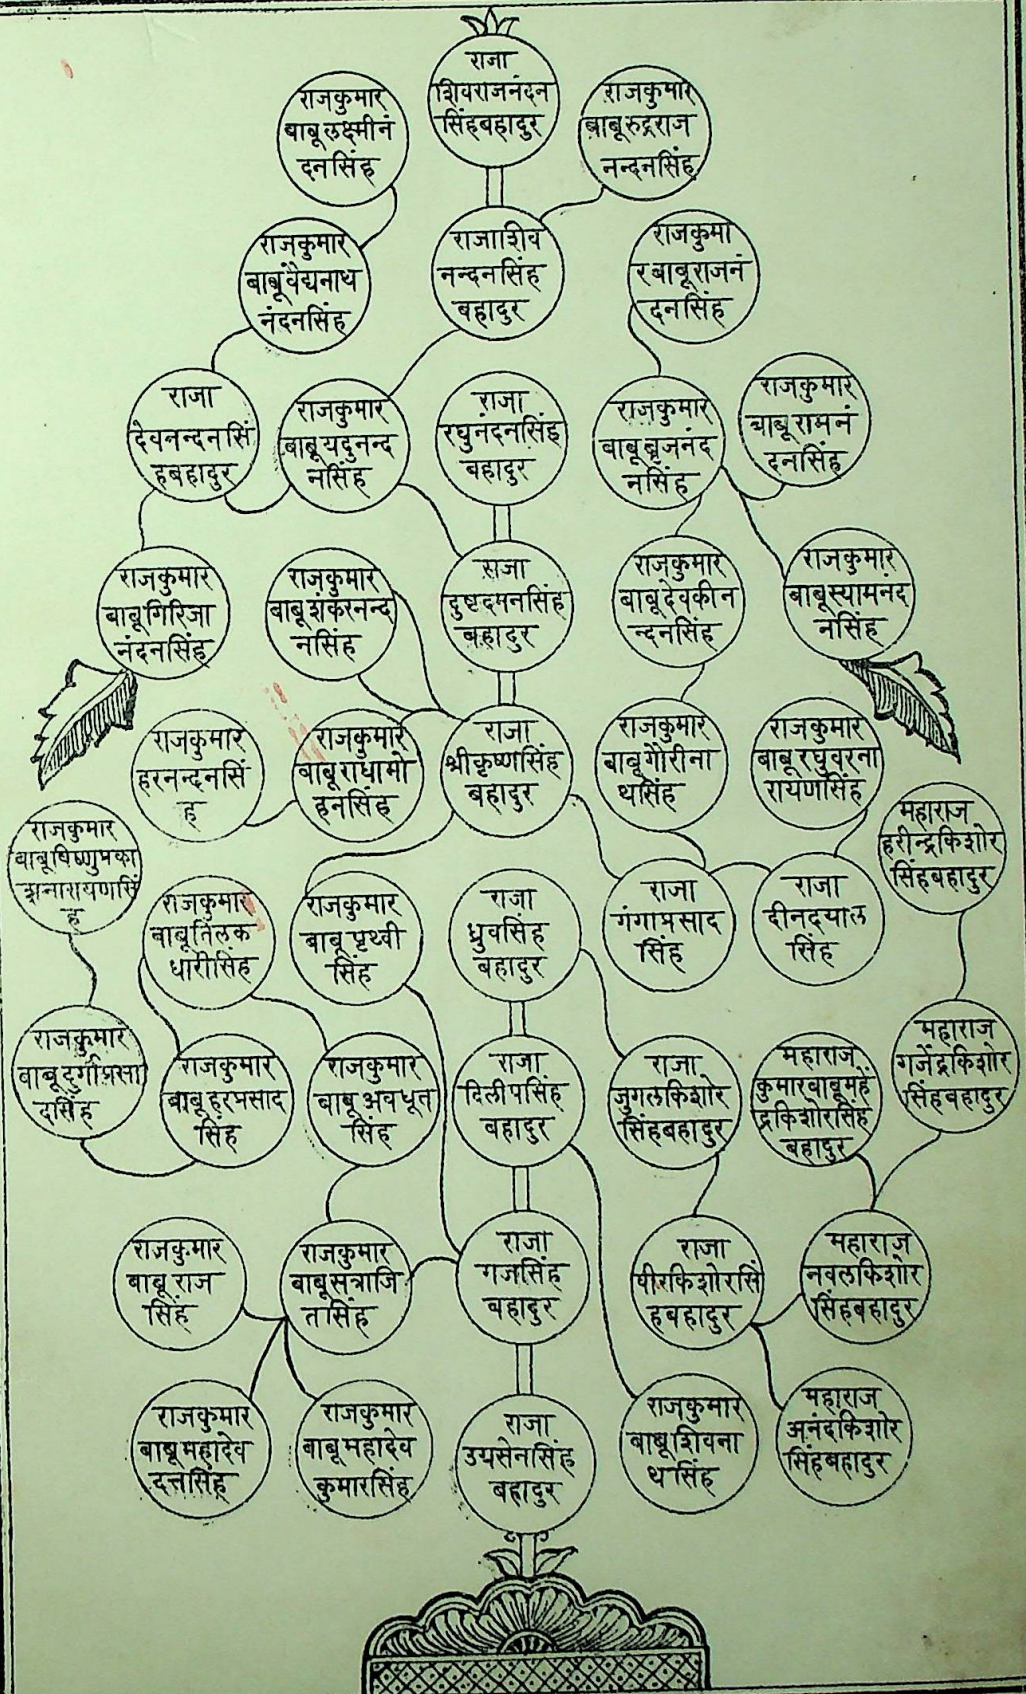 राजा
शिवराजनंदन
सिंहबहादुर
राजकुमार
बाबूलक्ष्मीनं
दनसिंह
राजकुमार
बाबूरुद्रराज
नन्दनसिंह
राजकुमार
बाबूवैद्यनाथ
नंदनसिंह
राजाशिव
नन्दनसिंह
बहादुर
राजकुमा
रबाबूराजनं
दनसिंह
राजा
देवनन्दनसिं
हबहादुर
राजकुमार
बाबूयदुनन्द
नसिंह
राजा
रघुनंदनसिंह
बहादुर
राजकुमार
बाबूब्रजनंद
नसिंह
राजकुमार
बाबूरामनं
दनसिंह
राजकुमार
बाबूगिरिजा
नंदनसिंह
राजकुमार
बाबूशंकरनन्द
नसिंह
राजा
दुष्टदमनसिंह
बहादुर
राजकुमार
बाबूदेवकीन
न्दनसिंह
राजकुमार
बाबूस्यामनंद
नसिंह
राजकुमार
हरनन्दनसिं
ह
राजकुमार
बाबूराधामो
हनसिंह
राजा
श्रीकृष्णसिंह
बहादुर
राजकुमार
बाबूगौरीना
थसिंह
राजकुमार
बाबूरघुवरना
रायणसिंह
राजकुमार
बाबूविष्णुप्रका
शनारायणसिं
ह
महाराज
हरीन्द्रकिशोर
सिंहबहादुर
राजकुमार
बाबूतिलक
धारीसिंह
राजकुमार
बाबूपृथ्वी
सिंह
राजा
ध्रुवसिंह
बहादुर
राजा
गंगाप्रसाद
सिंह
राजा
दीनदयाल
सिंह
राजकुमार
बाबूदुर्गाप्रसा
दसिंह
राजकुमार
बाबूहरप्रसाद
सिंह
राजकुमार
बाबूअवधूत
सिंह
राजा
दिलीपसिंह
बहादुर
राजा
जुगलकिशोर
सिंहबहादुर
महाराज
कुमारबाबूमहें
द्रकिशोरसिंह
बहादुर
महाराज
गजेंद्रकिशोर
सिंहबहादुर
राजकुमार
बाबूराज
सिंह
राजकुमार
बाबूसत्राजि
तसिंह
राजा
गजसिंह
बहादुर
राजा
वीरकिशोरसिं
हबहादुर
महाराज
नवलकिशोर
सिंहबहादुर
राजकुमार
बाबूमहादेव
दत्तसिंह
राजकुमार
बाबूमहादेव
कुमारसिंह
राजा
उग्रसेनसिंह
बहादुर
राजकुमार
बाबूशिवना
थसिंह
महाराज
अनंदकिशोर
सिंहबहादुर